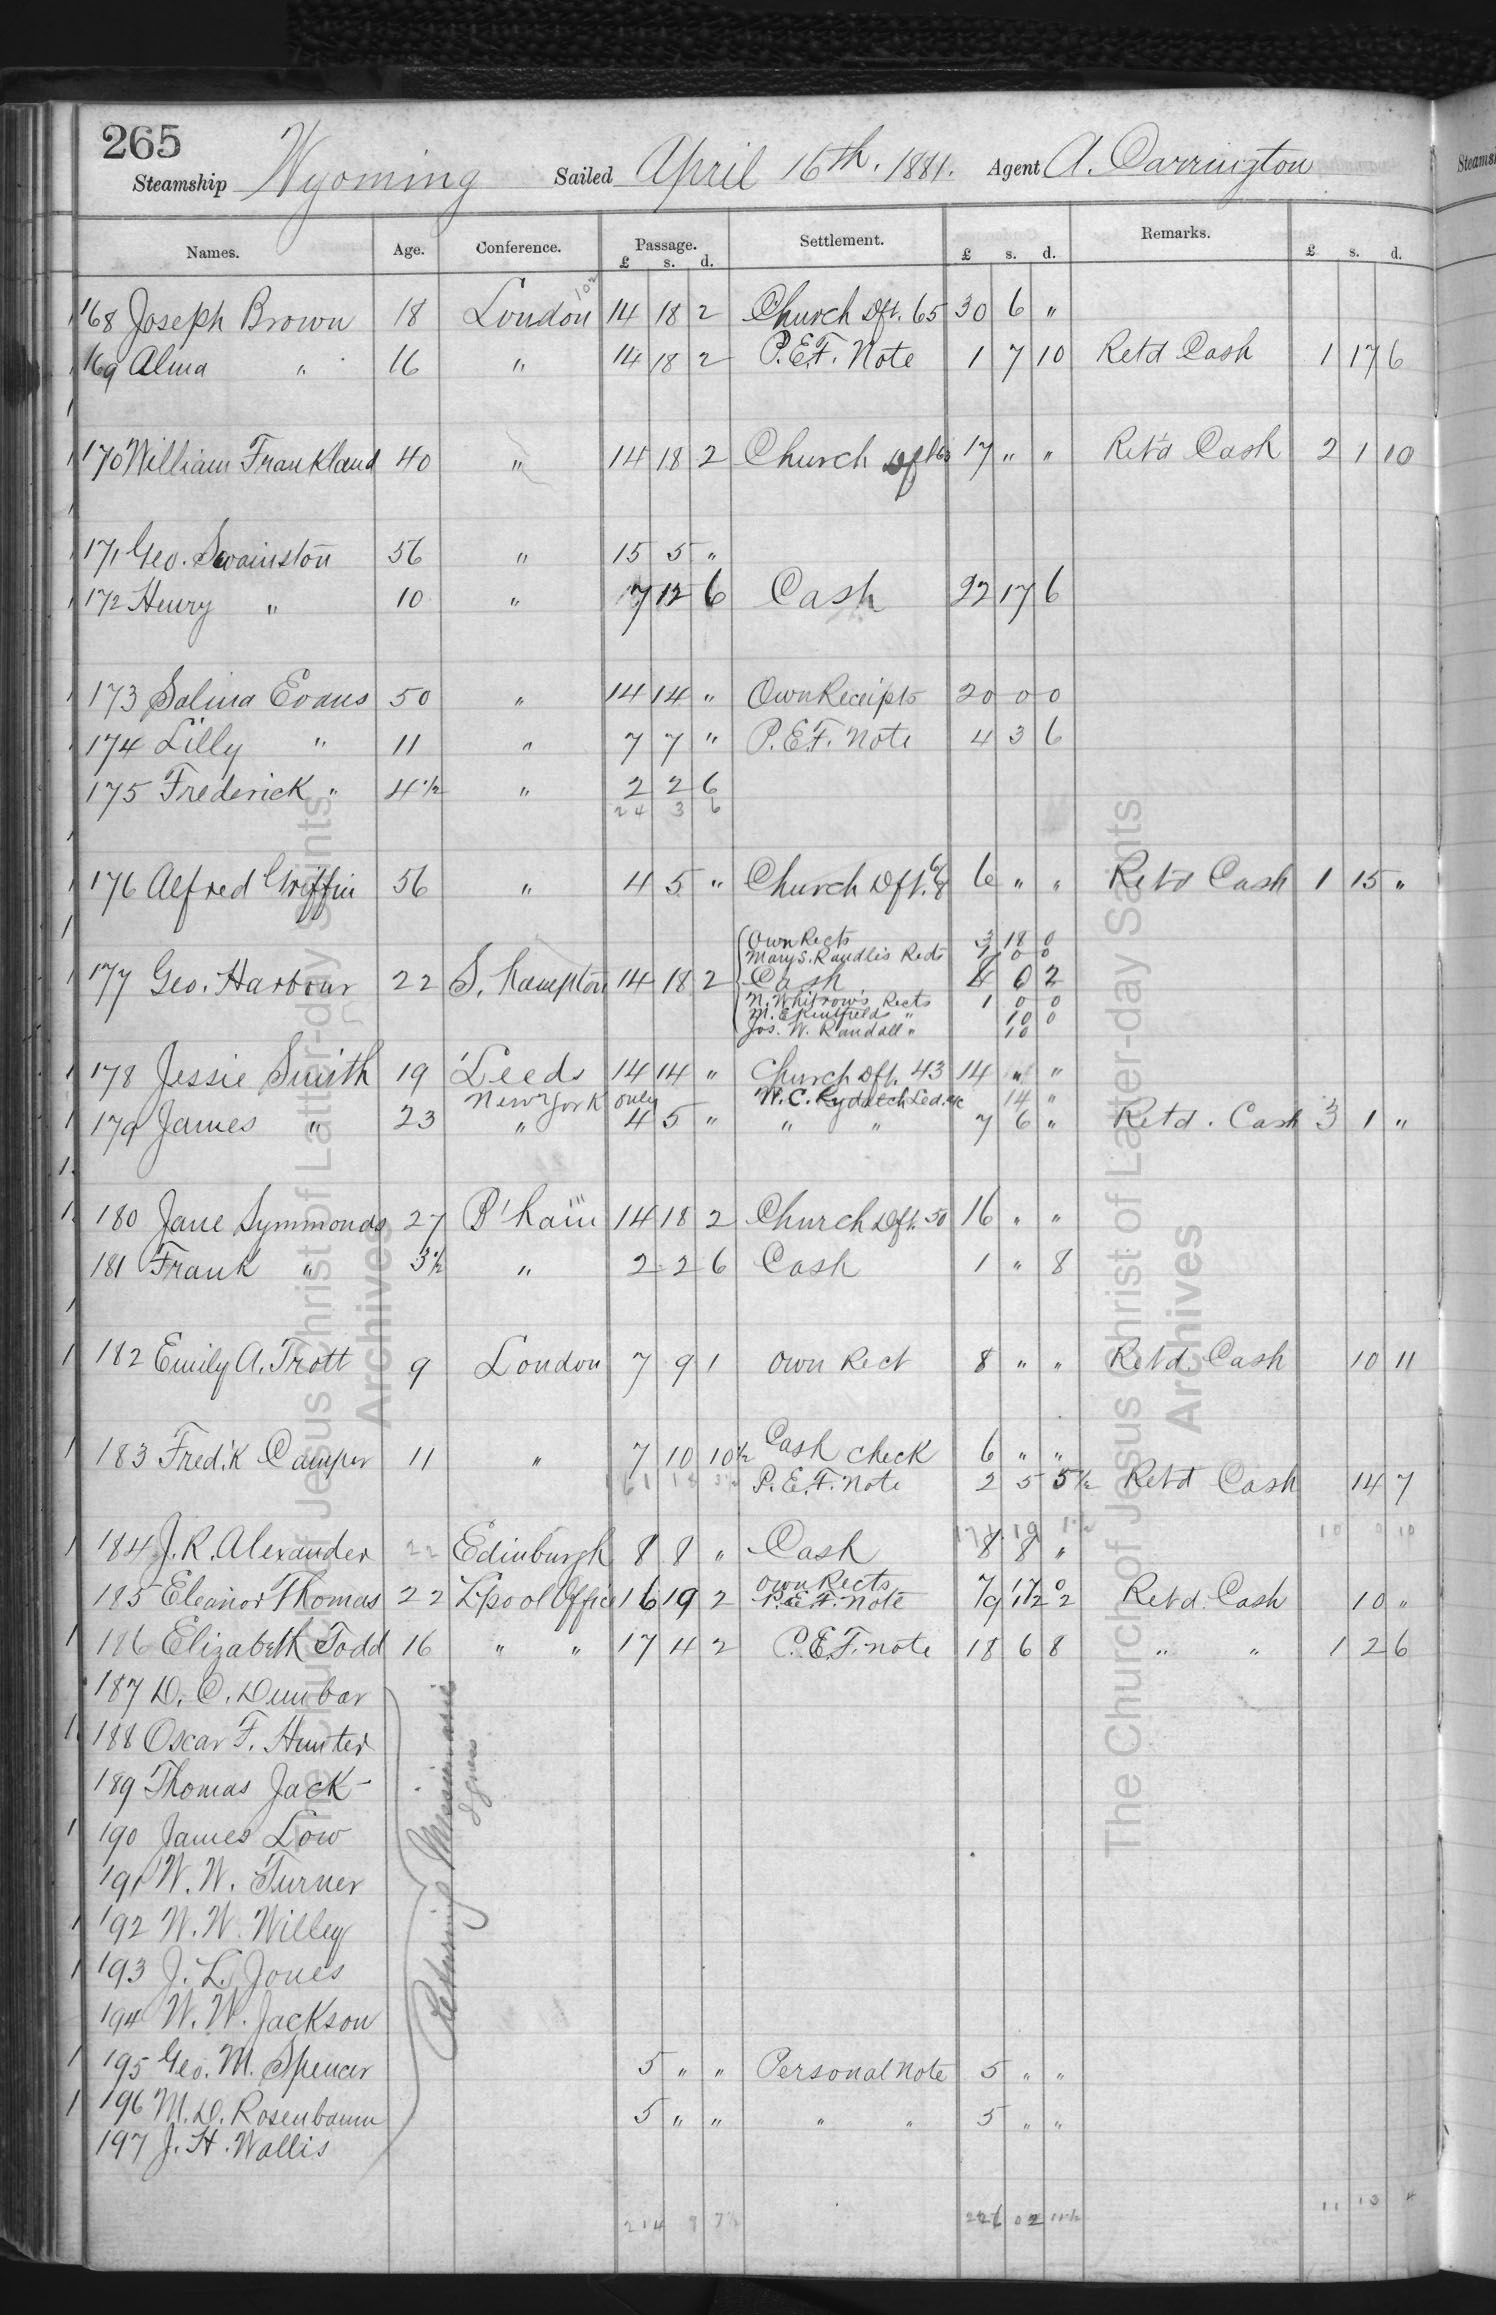 265
Steamship Wyoming Sailed April 16th. 1881. Agent A. Carrington
Names. Age. Conference. Passage. Settlement. Remarks.
£ s. d. £ s. d. £ s. d.
168 Joseph Brown 18 London 14 18 2 Church Dft. 65 30 6 "
169 Alma " 16 " 14 18 2 P.E.F. Note 1 7 10 Ret'd Cash 1 17 6
170 William Frankland 40 " 14 18 2 Church Dft 17 " " Ret'd Cash 2 1 10
171 Geo. Swainston 56 " 15 5 "
172 Henry " 10 " 7 12 6 Cash 22 17 6
173 Salina Evans 50 " 14 14 " Own Receipts 20 0 0
174 Lilly " 11 " 7 7 " P.E.F. Note 4 3 6
175 Frederick " 4 1/2 " 2 2 6
24 3 6
176 Alfred Griffin 56 " 4 5 " Church Dft. 6 " " Ret'd Cash 1 15 "
Own Rects 3 18 0
Mary S. Randlis Rects 0 0
177 Geo. Harbour 22 S. hampton 14 18 2 Cash 0 2
N. Whitrow's Rects 1 0 0
" 10 0
Jos. W. Randall " 10
178 Jessie Smith 19 Leeds 14 14 " Church Dft. 43 14 " "
New York only W. C. Led. 14 "
179 James " 23 " 4 5 " " " 7 6 " Retd. Cash 3 1 "
180 Jane Symmonds 27 B'ham 14 18 2 Church Dft. 50 16 " "
181 Frank " 3 1/2 " 2 2 6 Cash 1 " 8
182 Emily A. Trott 9 London 7 9 1 Own Rect 8 " " Retd. Cash 10 11
183 Fred.'k Camper 11 " 7 10 10 1/2 Cash Check 6 " "
161 18 P.E.F. Note 2 5 5 1/2 Ret'd Cash 14 7
171 19 10 0 10
184 J. R. Alexander 22 Edinburgh 8 8 " Cash 8 8 "
Own Rects 7 17 0
185 Eleanor Thomas 22 L'pool Office 16 19 2 P.E.F. Note 9 2 2 Retd. Cash 10 "
186 Elizabeth Todd 16 " " 17 4 2 P.E.F. note 18 6 8 " " 1 2 6
187 D. C. Dunbar
188 Oscar F. Hunter
189 Thomas Jack
190 James Low
191 W. W. Turner
192 W. W. Willey
193 J. L. Jones
194 W. W. Jackson
195 Geo. M. Spencer 5 " " Personal Note 5 " "
196 M. D. Rosenbaum 5 " " " " 5 " "
197 J. H. Wallis
Returning Missionaries
214 9 7 1/2 226 02 11 13 4
The Church of Jesus Christ of Latter-day Saints
Archives
The Church of Jesus Christ of Latter-day Saints
Archives
Steams